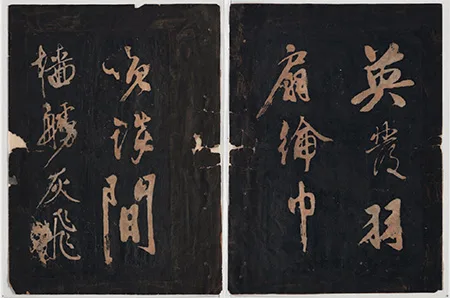 英發羽
扇綸巾
咲談間
檣艣灰飛